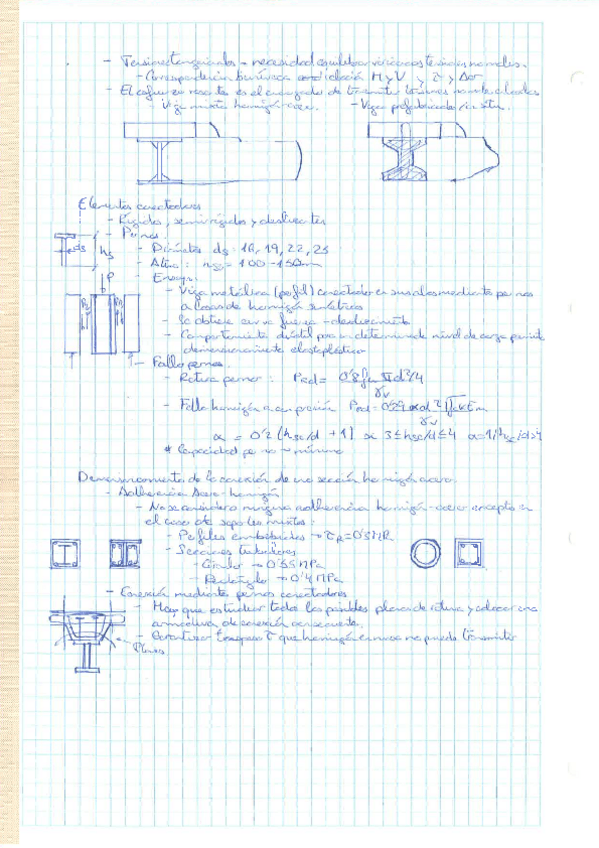 - Tensiones tangenciales → necesidad equilibrar variaciones tensiones normales.
- Correspondencia biunívoca entre relación M y V y τ y Δσ
- El esfuerzo rasante es el encargado de transmitir tensiones normales
- Viga mixta hormigón-acero. - Vigas prefabricadas/in situ.
Elementos conectadores
- Rígidos, semirígidos y deslizantes
- Pernos
- Diámetros ds: 16, 19, 22, 25
- Altura: hs = 100-150mm
- Ensayo:
ds hs P
- Viga metálica (perfil) conectado en sus alas mediante pernos
a losas de hormigón simétricas
- Se obtiene curva fuerza-deslizamiento
- Comportamiento dúctil para un determinado nivel de carga permite
dimensionamiento elastoplástico
- Fallo pernos
- Rotura pernos: PRd = 0'8fu πd²/4
γv
- Fallo hormigón a compresión PRd = 0'29αd²√fck Ecm
γv
α = 0'2 (hsc/d + 1) 3≤hsc/d≤4 α=1 hsc/d>4
* Capacidad perno → mínimo
Dimensionamiento de la conexión de una sección hormigón acero.
- Adherencia Acero-hormigón
- No se considera ninguna adherencia hormigón-acero excepto en
el caso de soportes mixtos:
- Perfiles embebidos → τR=0'3MPa
- Secciones tubulares
- Circular → 0'55MPa
- Rectángulo → 0'4MPa
- Conexión mediante pernos conectadores
- Hay que estudiar todos los posibles planos de rotura y colocar una
armadura de conexión consecuente.
- Garantizar τ que hormigón en masa no puede transmitir
Planos